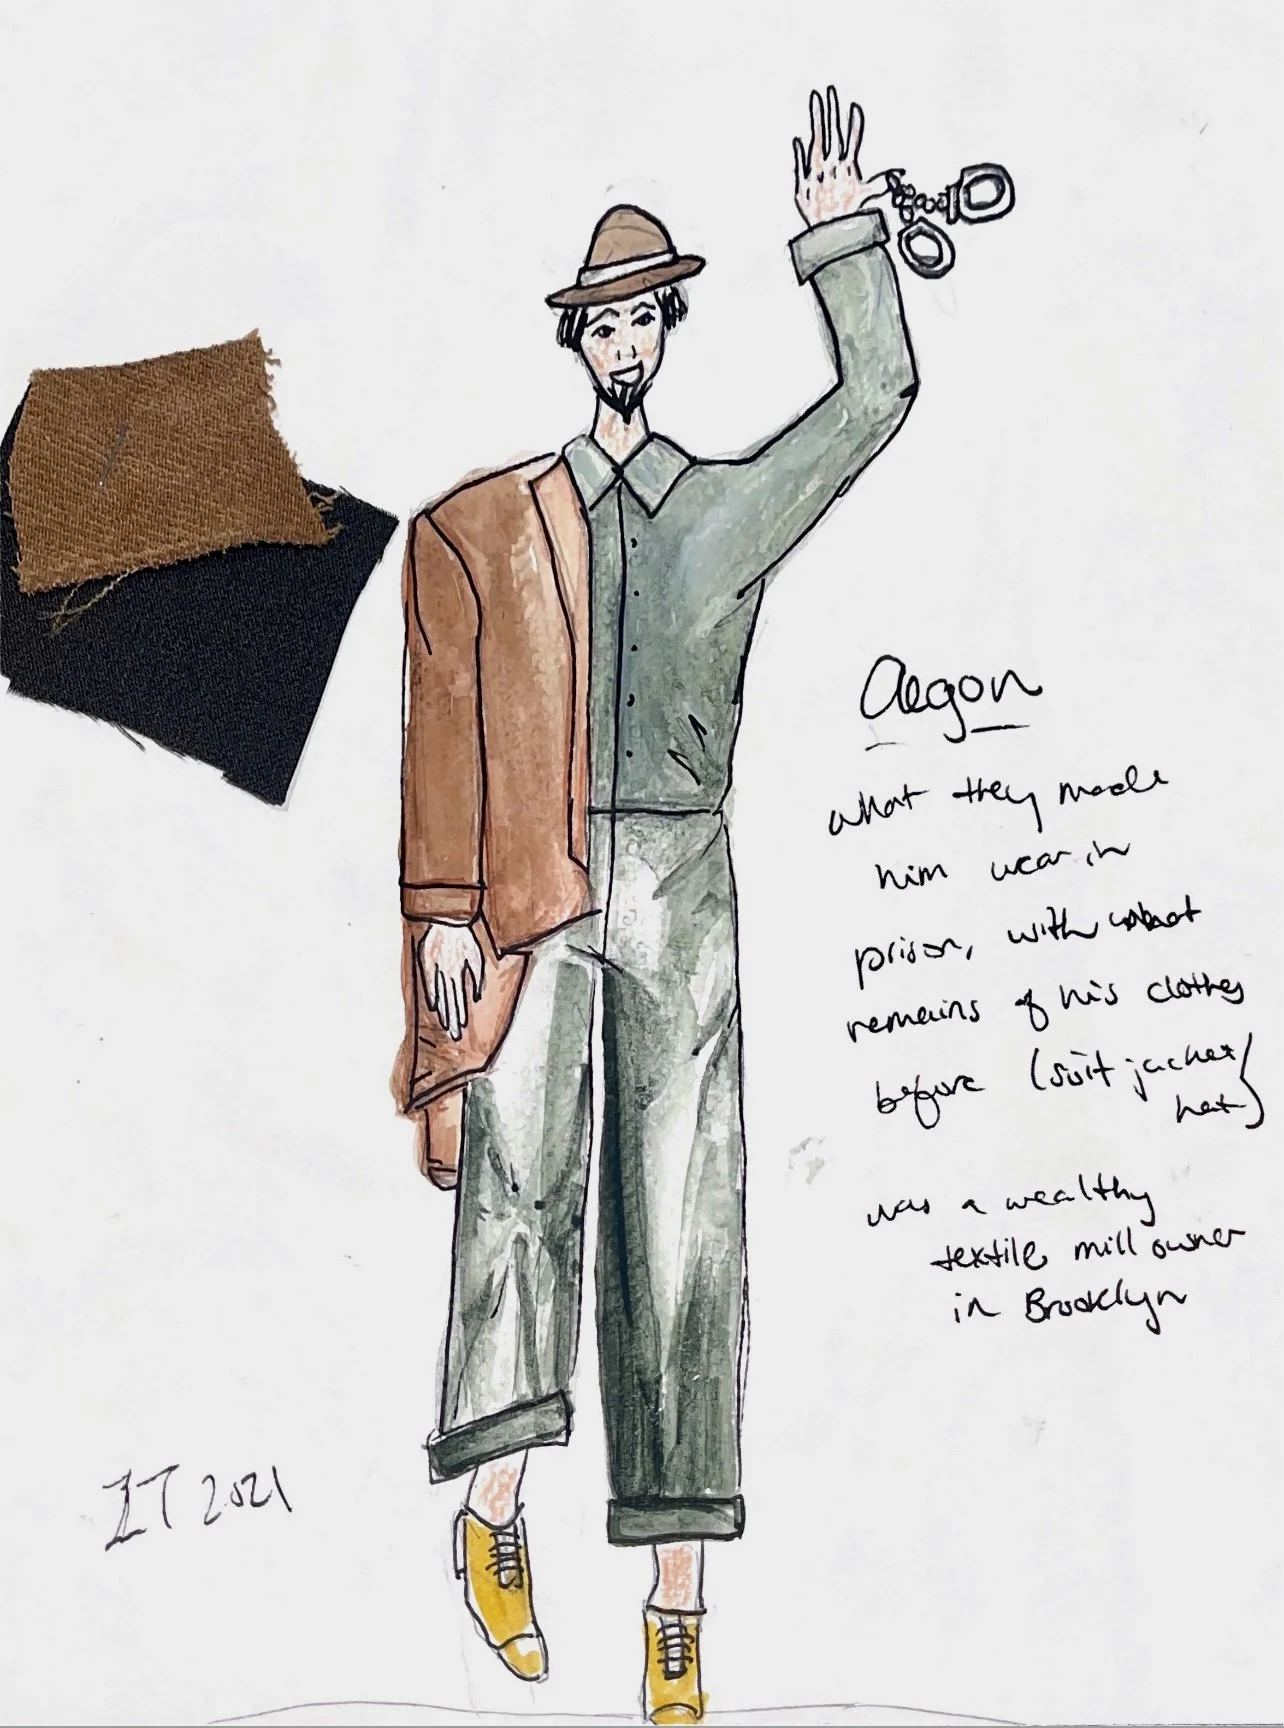 Aegon
what they made
him wear in
prison, with what
remains of his clothes
before (suit jacket
hat)
was a wealthy
textile mill owner
in Brooklyn
IT 2021